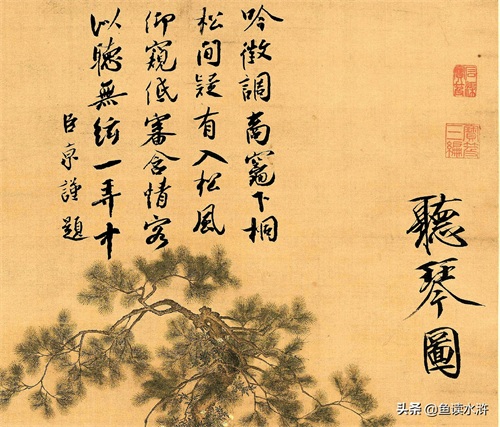 聽琴圖
寶笈三編
吟徵調商竈下桐
松間疑有入松風
仰窺低審含情客
以聽無絃一弄中
臣京謹題
头条 @鱼读水浒